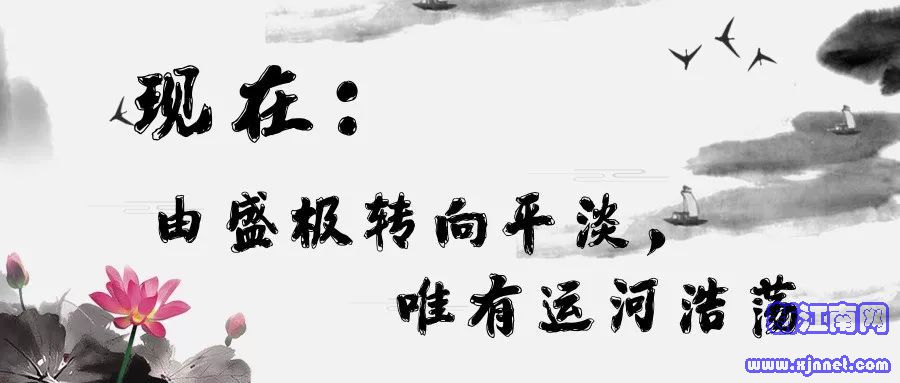 现在：
由盛极转向平淡，
唯有运河浩荡
江南网
www.xjnnet.com